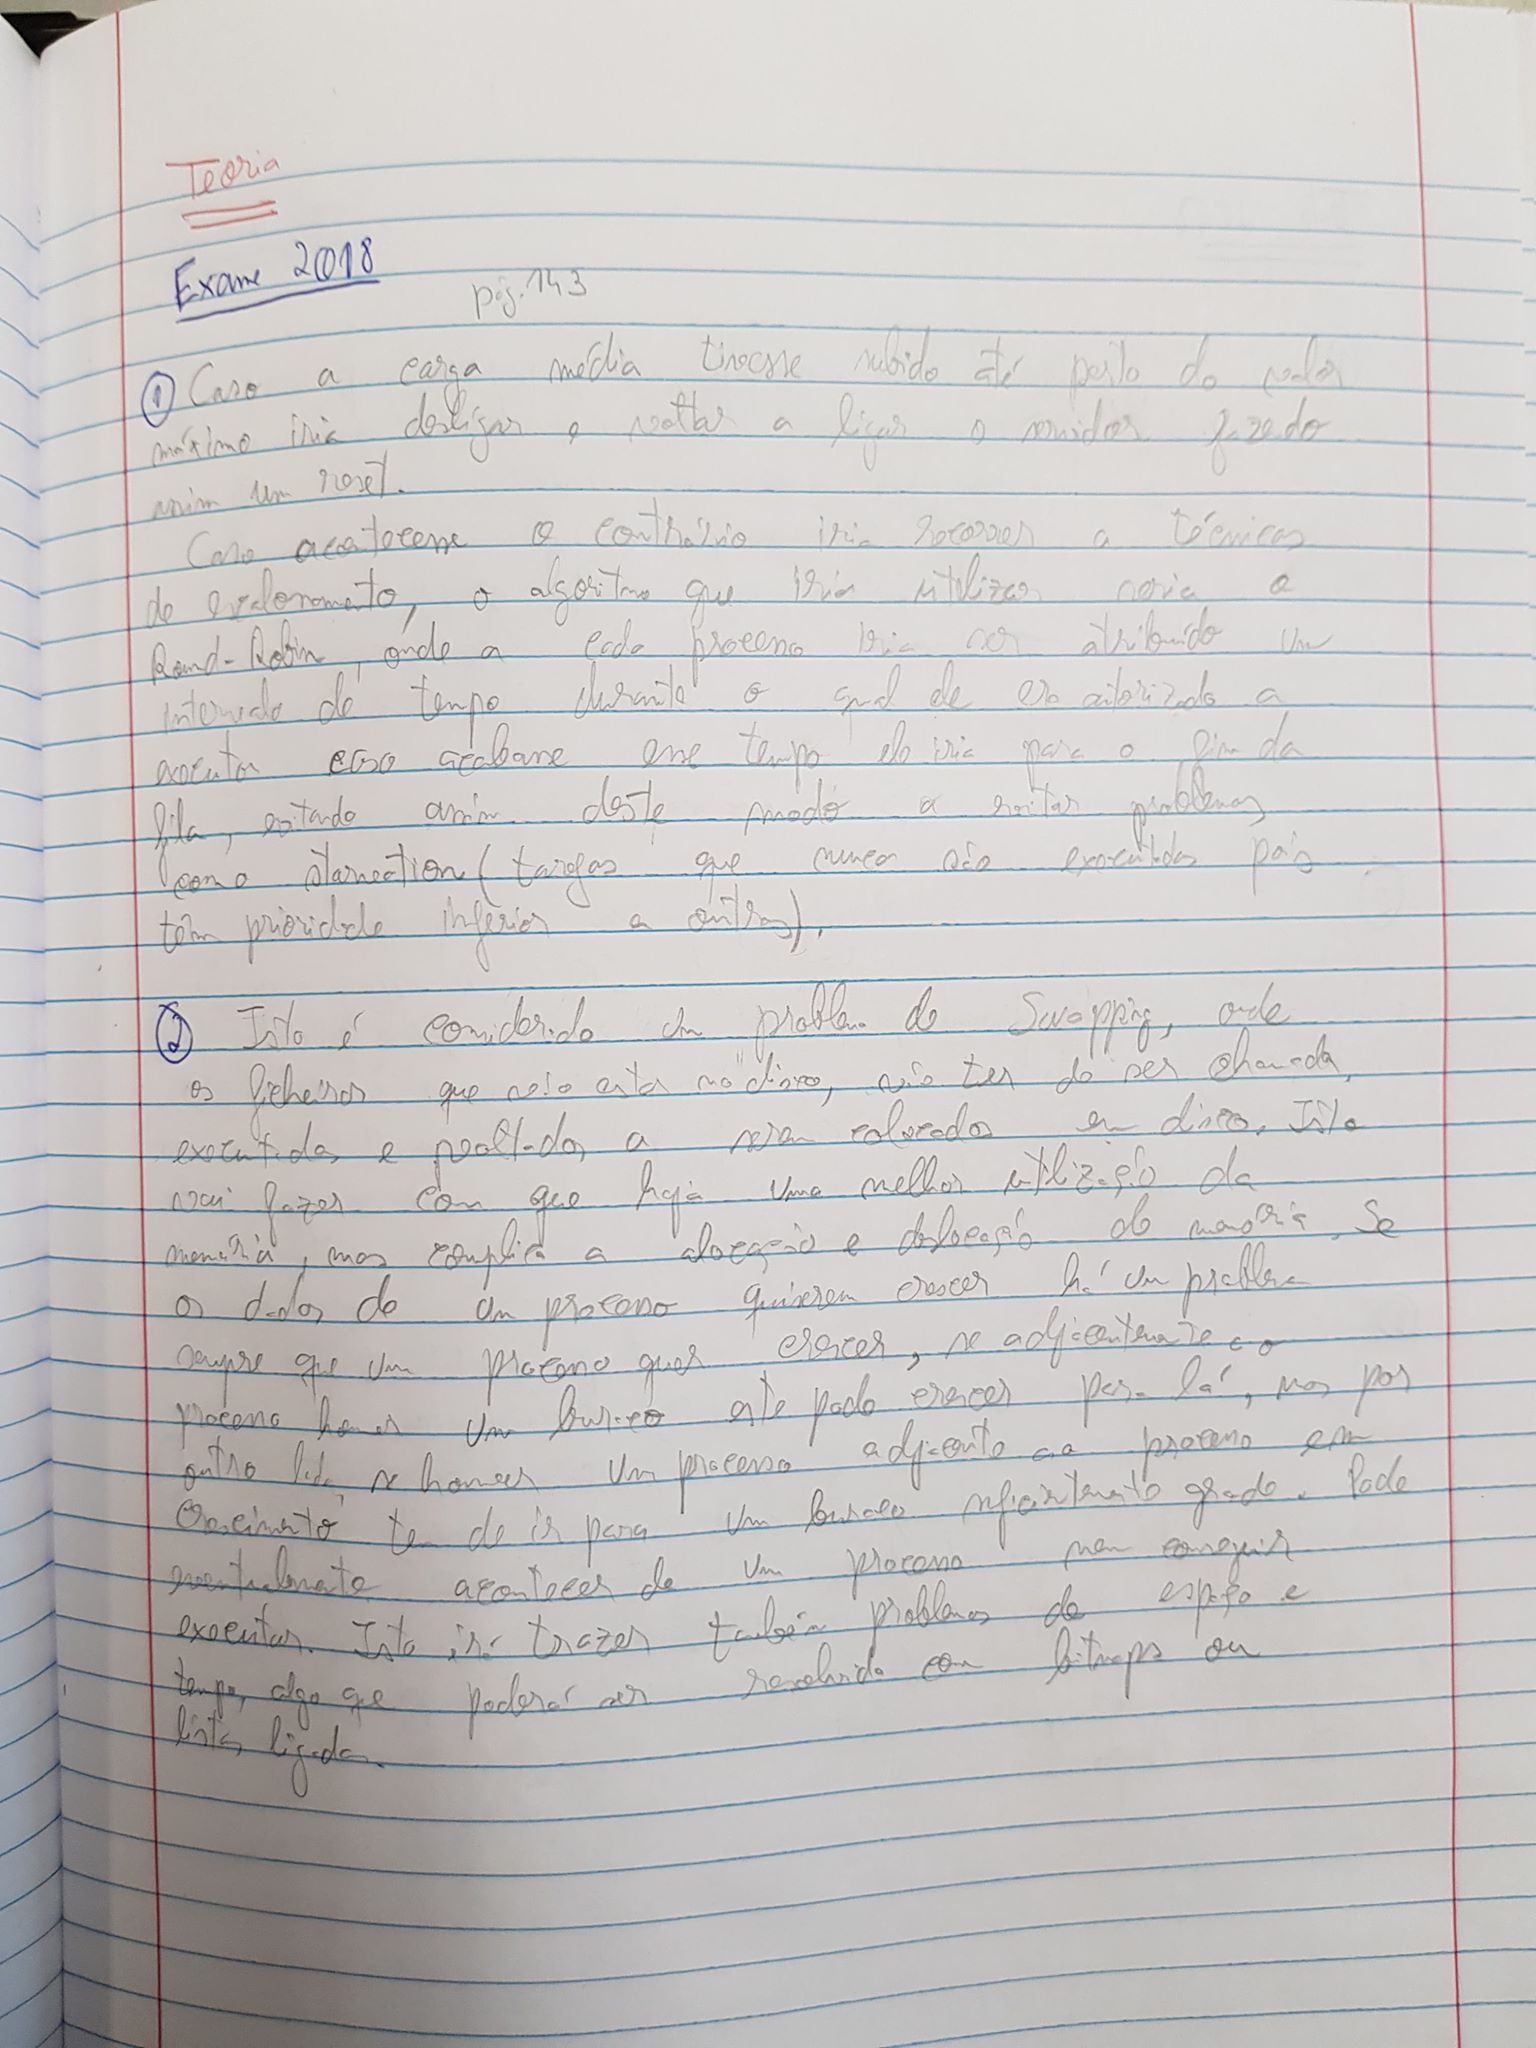 Teoria
Exame 2018
pág. 143
① Caso a carga média tivesse subido até perto do valor
máximo iria desligar e voltar a ligar o servidor fazedo
assim um reset.
Caso acontecesse o contrário iria recorrer a técnicas
de escalonamento, o algoritmo que iria utilizar seria o
Round-Robin, onde a cada processo iria ser atribuído um
intervalo de tempo durante o qual ele era autorizado a
executar caso acabasse esse tempo ele iria para o fim da
fila, evitando assim deste modo a evitar problemas
como starvation (tarefas que nunca são executadas pois
têm prioridade inferior a outras).
② Isto é considerado um problema de Swapping, onde
os ficheiros que vão estar no disco, vão ter de ser chamados,
executados e voltados a serem colocados em disco. Isto
vai fazer com que haja uma melhor utilização da
memória, mas complica a alocação e deslocação de memória. Se
os dados de um processo quiserem crescer há um problema
sempre que um processo quer crescer, se adjacentemente ao
processo houver um buraco este pode crescer para lá, mas por
outro lado, se houver um processo adjacente ao processo em
crescimento tem de ir para um buraco suficientemente grande. Pode
eventualmente acontecer de um processo nem conseguir
executar. Isto irá trazer também problemas de espaço e
tempo, algo que poderá ser resolvido com bitmaps ou
listas ligadas.